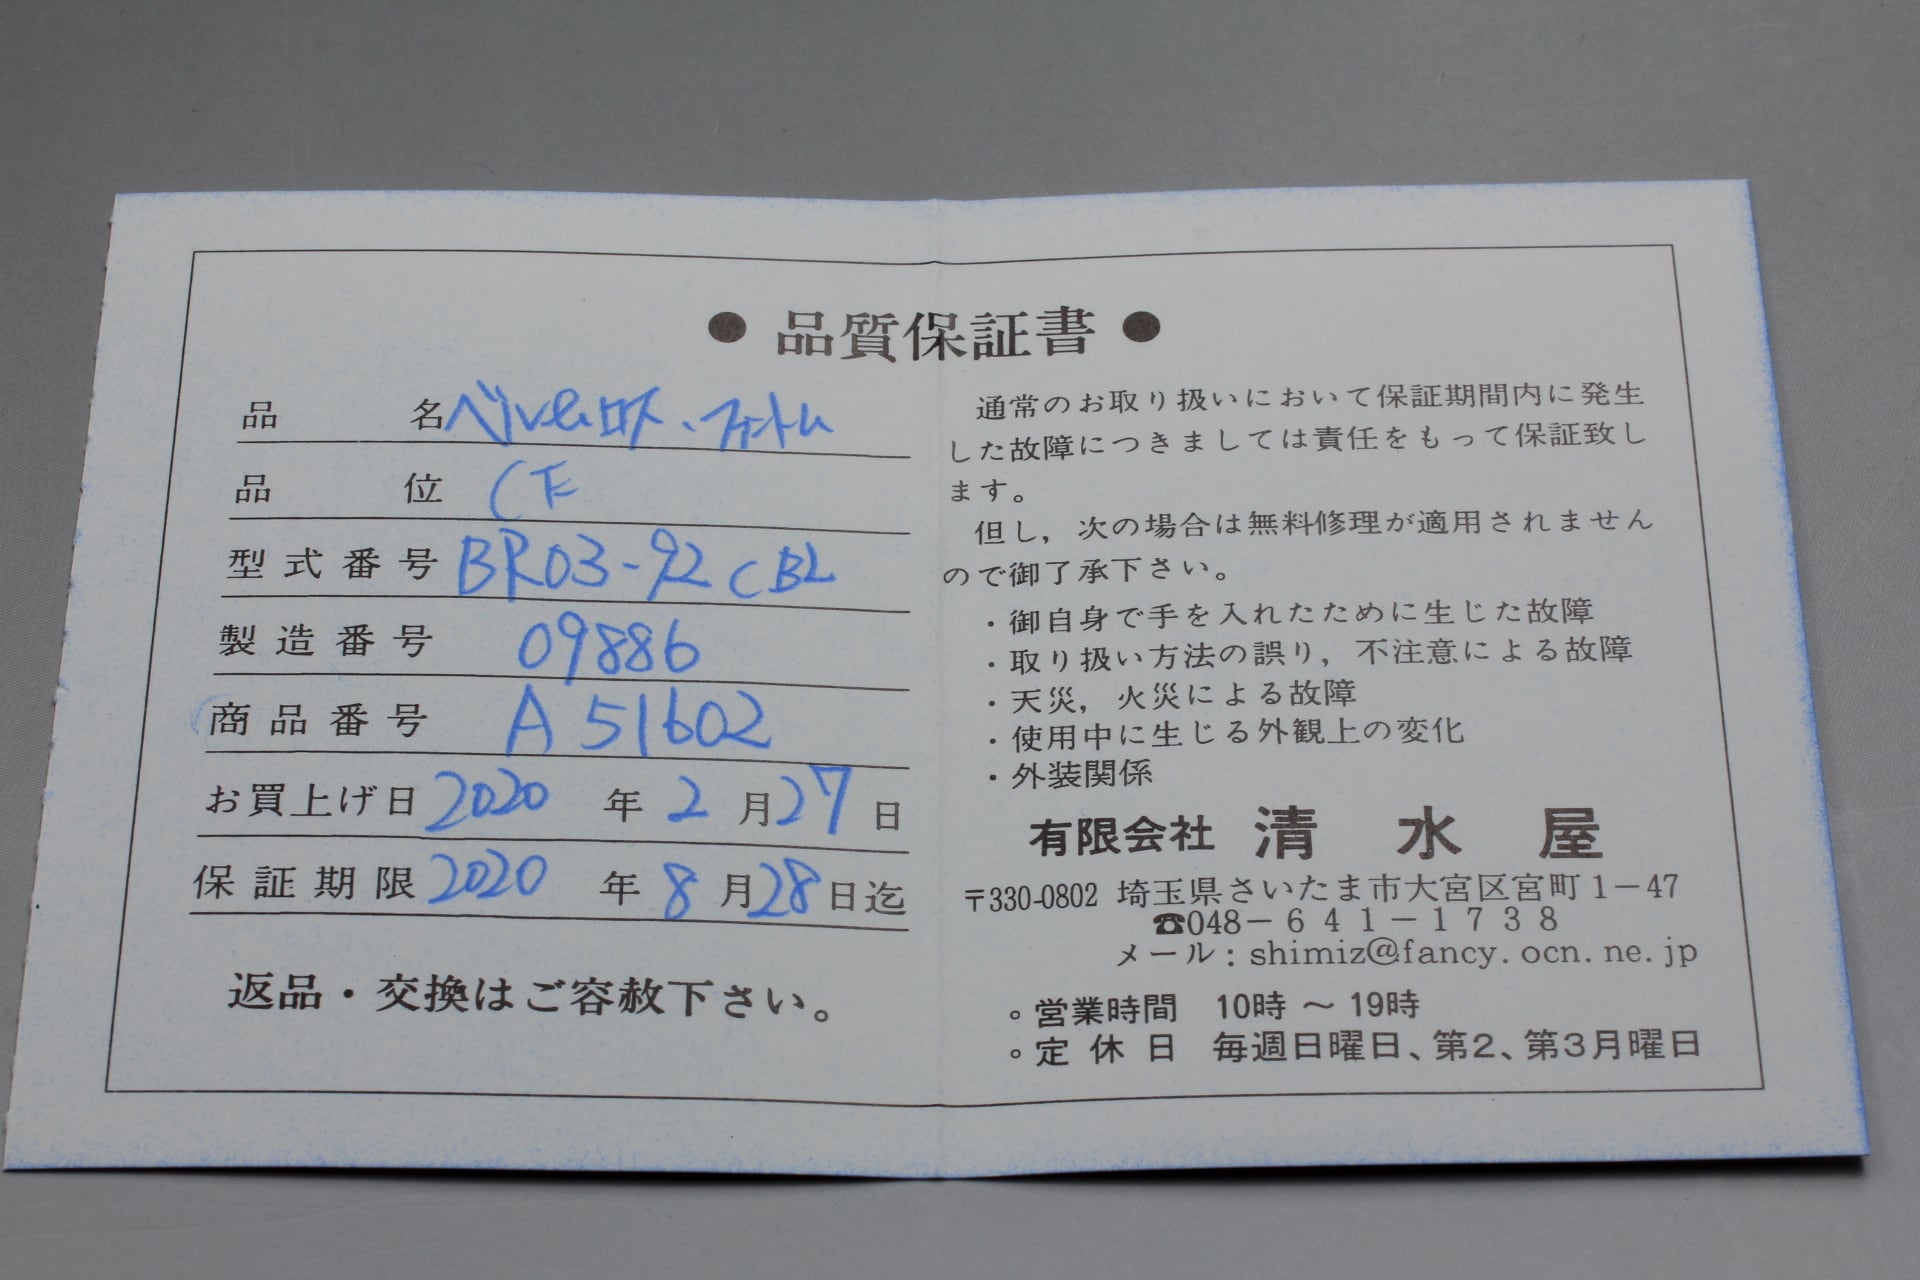 ● 品質保証書 ●
品名 ベル&ロス、ファントム
品位 CF
型式番号 BR03-92 CBL
製造番号 09886
商品番号 A 51602
お買上げ日 2020 年 2 月 27 日
保証期限 2020 年 8 月 28 日迄
返品・交換はご容赦下さい。
通常のお取り扱いにおいて保証期間内に発生
した故障につきましては責任をもって保証致し
ます。
但し，次の場合は無料修理が適用されません
ので御了承下さい。
・御自身で手を入れたために生じた故障
・取り扱い方法の誤り，不注意による故障
・天災，火災による故障
・使用中に生じる外観上の変化
・外装関係
有限会社 清水屋
〒330-0802 埼玉県さいたま市大宮区宮町1－47
☎048－641－1738
メール：shimiz@fancy.ocn.ne.jp
○営業時間 10時～19時
○定休日 毎週日曜日、第2、第3月曜日